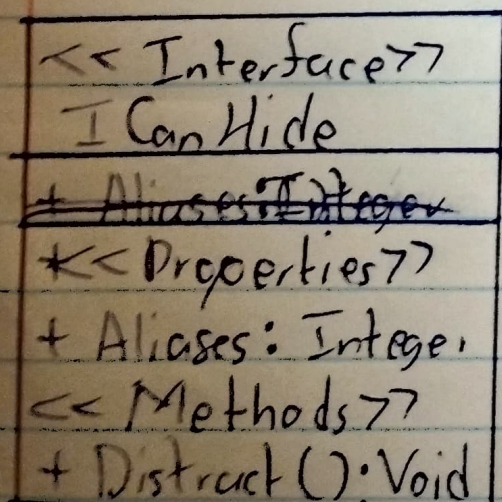 <<Interface>>
ICanHide
+ Aliases: Integer
<<Properties>>
+ Aliases: Integer
<<Methods>>
+ Distract(): Void